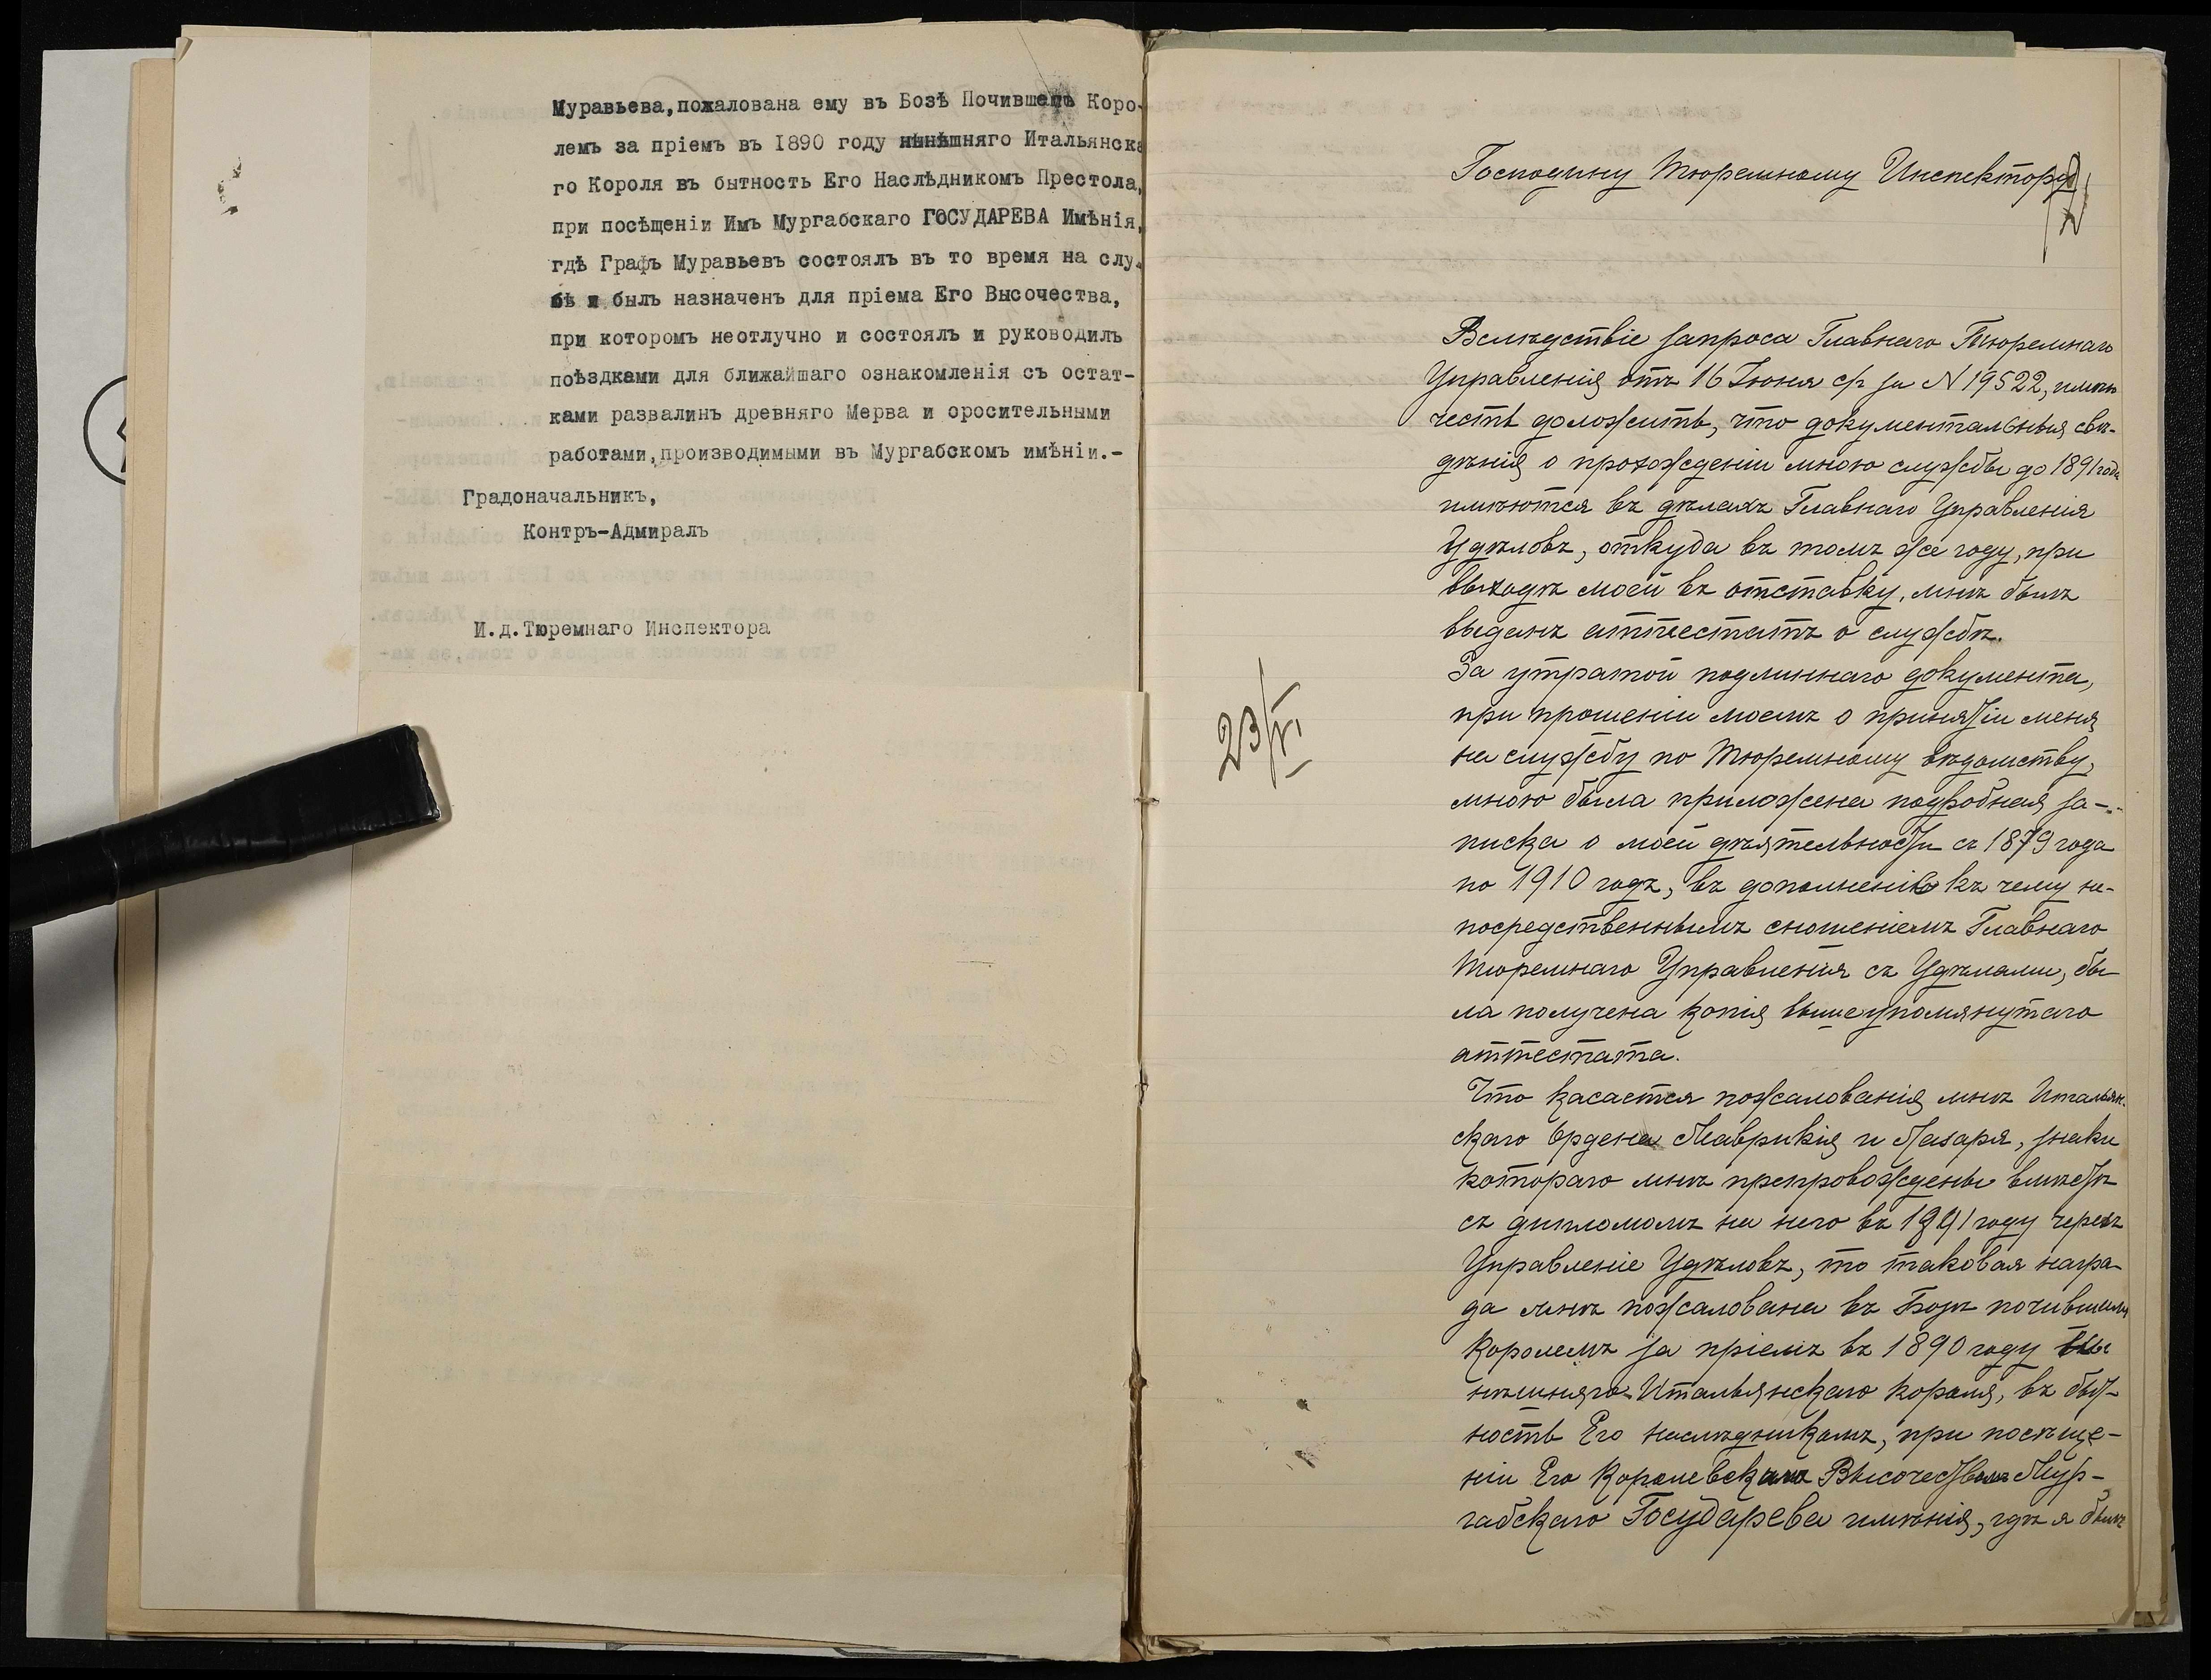 Муравьева, пожалована ему въ Бозѣ Почившемъ Коро-
лемъ за пріемъ въ 1890 году нынѣшняго Итальянска
го Короля въ бытность Его Наслѣдникомъ Престола,
при посѣщеніи Имъ Мургабскаго ГОСУДАРЕВА Имѣнія,
гдѣ Графъ Муравьевъ состоялъ въ то время на слу-
бѣ и былъ назначенъ для пріема Его Высочества,
при которомъ неотлучно и состоялъ и руководилъ
поѣздками для ближайшаго ознакомленія съ остат-
ками развалинъ древняго Мерва и оросительными
работами, производимыми въ Мургабскомъ имѣніи.-
Градоначальникъ,
Контръ-Адмиралъ
И.д.Тюремнаго Инспектора
23/VI
Господину Тюремному Инспектору
Вслѣдствіе запроса Главнаго Тюремнаго
Управленія отъ 16 Іюня с/г за N 19522, имѣю
честь доложить, что документальныя свѣ-
дѣнія о прохожденіи мною службы до 1891 года
имѣются въ дѣлахъ Главнаго Управленія
Удѣловъ, откуда въ томъ же году, при
выходѣ моей въ отставку, мнѣ былъ
выданъ аттестатъ о службѣ.
За утратой подлиннаго документа,
при прошеніи моемъ о принятіи меня
на службу по Тюремному вѣдомству,
мною была приложена подробная за-
писка о моей дѣятельности съ 1879 года
по 1910 годъ, въ дополненіе къ чему не-
посредственнымъ сношеніемъ Главнаго
Тюремнаго Управленія съ Удѣлами, бы-
ла получена копія вышеупомянутаго
аттестата.
Что касается пожалованія мнѣ Итальян-
скаго Ордена Маврикія и Лазаря, знаки
котораго мнѣ препровождены вмѣстѣ
съ дипломомъ на него въ 1891 году черезъ
Управленіе Удѣловъ, то таковая награ-
да мнѣ пожалована въ Бозѣ почившимъ
Королемъ за пріемъ въ 1890 году ны
нѣшняго Итальянскаго Короля, въ быт-
ность Его наслѣдникомъ, при посѣще-
ніи Его Королевскимъ Высочествомъ Мур-
габскаго Государева имѣнія, гдѣ я былъ